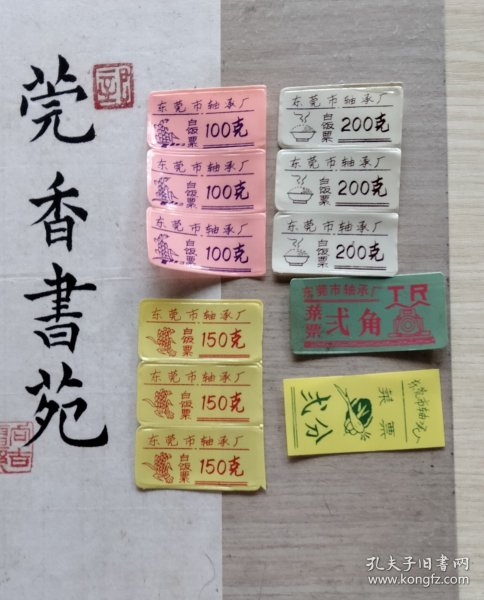 莞香書苑
东莞市轴承厂
白饭票 100克
东莞市轴承厂
白饭票 100克
东莞市轴承厂
白饭票 100克
东莞市轴承厂
白饭票 200克
东莞市轴承厂
白饭票 200克
东莞市轴承厂
白饭票 200克
东莞市轴承厂
菜票 弍角
东莞市轴承厂
白饭票 150克
东莞市轴承厂
白饭票 150克
东莞市轴承厂
白饭票 150克
菜票
弍分
孔夫子旧书网
www.kongfz.com